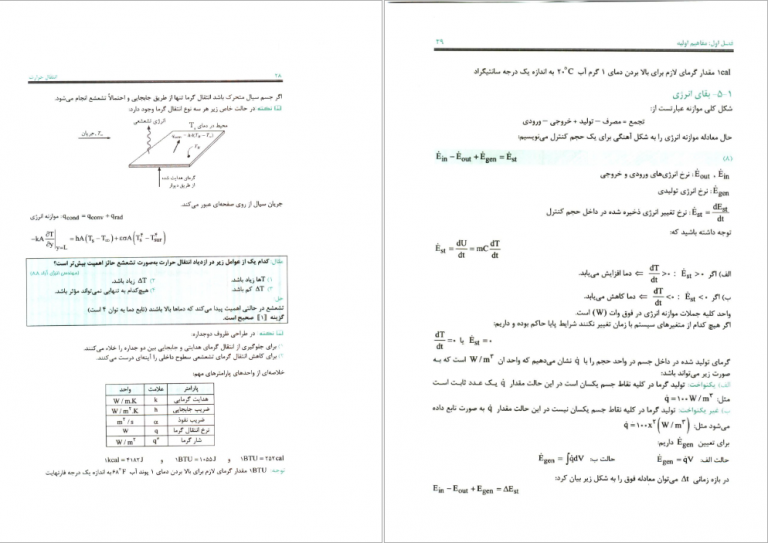 ۲۸
انتقال حرارت
اگر جسم سیال متحرک باشد انتقال گرما تنها از طریق جابجایی و احتمالاً تشعشع انجام می‌شود.
نکته: در حالت خاص زیر هر سه نوع انتقال گرما وجود دارد:
انرژی تشعشعی
محیط در دمای
جریان, T∞
گرمای هدایت شده
از طریق دیوار
جریان سیال از روی صفحه‌ای عبور می‌کند.
موازنه انرژی: qcond = qconv + qrad
-kA ∂T/∂y |y=L = hA(Ts − T∞) + εσA(Ts⁴ − Tsur⁴)
مثال: کدام یک از عوامل زیر در ازدیاد انتقال حرارت به‌صورت تشعشع حائز اهمیت بیش‌تر است؟
۱) Tها زیاد باشد.
۲) ΔT زیاد باشد.
۳) ΔT کم باشد.
۴) هیچ‌کدام به تنهایی نمی‌تواند مؤثر باشد.
حل:
تشعشع در حالتی اهمیت پیدا می‌کند که دماها بالا باشند (تابع دما به توان ۴ است)
گزینه [۱] صحیح است.
نکته: در طراحی ظروف دوجداره.
۱) برای جلوگیری از انتقال گرمای هدایتی و جابجایی بین دو جداره را خلاء می‌کنند.
۲) برای کاهش انتقال گرمای تشعشعی سطوح داخلی را آینه‌ای درست می‌کنند.
خلاصه‌ای از واحدهای پارامترهای مهم:
پارامتر علامت واحد
هدایت گرمایی k W / m.K
ضریب جابجایی h W / m².K
ضریب نفوذ α m² / s
نرخ انتقال گرما q W
شار گرما q" W / m²
۱kcal = ۴۱۸۲J و ۱BTU = ۱۰۵۵J و ۱BTU = ۲۵۲cal
توجه: ۱BTU مقدار گرمای لازم برای بالا بردن دمای ۱ پوند آب ۶۸°F به اندازه یک درجه فارنهایت
فصل اول: مفاهیم اولیه
۲۹
۱cal مقدار گرمای لازم برای بالا بردن دمای ۱ گرم آب ۲۰°C به اندازه یک درجه سانتیگراد
۱-۵- بقای انرژی
شکل کلی موازنه عبارتست از:
تجمع = مصرف − تولید + خروجی − ورودی
حال معادله موازنه انرژی را به شکل آهنگی برای یک حجم کنترل می‌نویسیم:
Ėin − Ėout + Ėgen = Ėst (۸)
Ėout , Ėin : نرخ انرژی‌های ورودی و خروجی
Ėgen : نرخ انرژی تولیدی
Ėst = dEst/dt : نرخ تغییر انرژی ذخیره شده در داخل حجم کنترل
توجه داشته باشید که:
Ėst = dU/dt = mC dT/dt
الف) اگر Ėst > ۰ : dT/dt > ۰ ⇐ دما افزایش می‌یابد.
ب) اگر Ėst < ۰ : dT/dt < ۰ ⇐ دما کاهش می‌یابد.
واحد کلیه جملات موازنه انرژی در فوق وات (W) است.
اگر هیچ کدام از متغیرهای سیستم با زمان تغییر نکنند شرایط پایا حاکم بوده و داریم:
Ėst = ۰ یا dT/dt = ۰
گرمای تولید شده در داخل جسم در واحد حجم را با q̇ نشان می‌دهیم که واحد آن W / m³ است که به
صورت زیر می‌تواند باشد:
الف) یکنواخت: تولید گرما در کلیه نقاط جسم یکسان است در این حالت مقدار q̇ یک عدد ثابت است
مثل: q̇ = ۱۰۰ W / m³
ب) غیر یکنواخت: تولید گرما در کلیه نقاط جسم یکسان نیست در این حالت مقدار q̇ به صورت تابع داده
می‌شود مثل: q̇ = ۱۰۰x² (W / m³)
برای تعیین Ėgen داریم:
حالت الف: Ėgen = q̇V حالت ب: Ėgen = ∫q̇dV
در بازه زمانی Δt می‌توان معادله فوق را به شکل زیر بیان کرد:
Ein − Eout + Egen = ΔEst